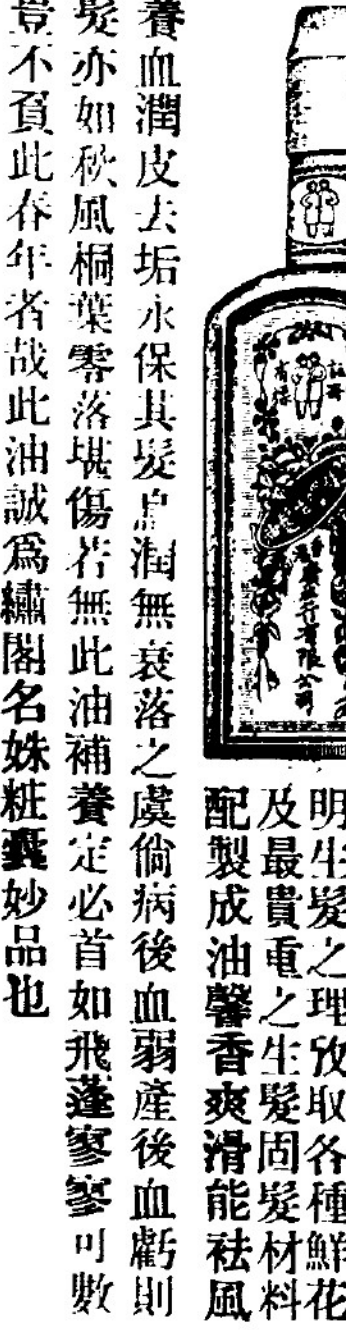 明生髮之理故取各種鮮花
及最貴重之生髮固髮材料
配製成油馨香爽滑能袪風
養血潤皮去垢永保其髮烏潤無衰落之虞倘病後血弱產後血虧則
髮亦如秋風桐葉零落堪傷若無此油補養定必首如飛蓬寥寥可數
豈不負此春年者哉此油誠爲繡閣名姝粧囊妙品也
行有限公司